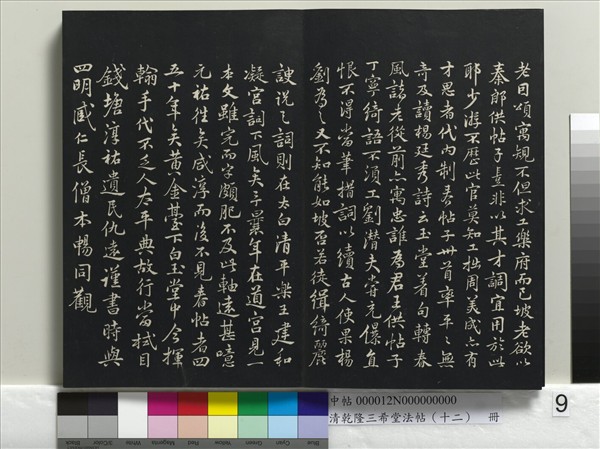 老因頌寓規不但求工樂府而已坡老欲以
秦郎供帖子豈非以其才調宜用於此
耶少游不歷此官莫知工拙周美成亦有
才思者代內制春帖子卅首率平〻無
奇及讀楊廷秀詩云玉堂著句轉春
風諸老從前亦寓忠誰為君王供帖子
丁寧綺語不須工劉潛夫嘗兄直
恨不得當筆措詞以續古人使果楊
劉為之又不知能如坡否若徒緝綺麗
諛說之詞則在太白清平樂王建和
凝宮詞下風矣予年在道宮見一
本文雖完而字頗肥不及此軸遠甚噫
元祐往矣咸淳而後不見春帖者四
五十年矣黃金臺下白玉堂中今揮
翰手代不乏人太平典故行當拭目
錢塘淳祐遺民仇遠謹書時與
四明臧仁長僧本暢同觀
中帖 000012N000000000
清乾隆三希堂法帖（十二） 冊
9
Black
3/Color
White
Magenta
Red
Yellow
Green
Cyan
Blue